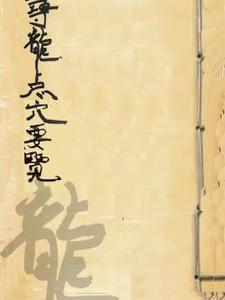 尋龍点穴要覽
龍